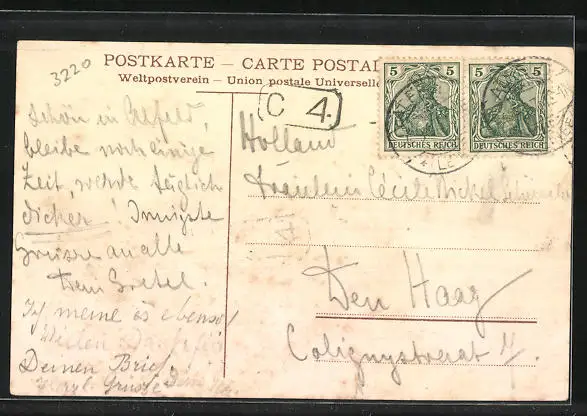 3220
POSTKARTE - CARTE POSTAL
Weltpostverein - Union postale Universelle
5 5
DEUTSCHES REICH
5 5
DEUTSCHES REICH
C 4.
Schön in Alfeld,
bleibe noch einige
Zeit, werde täglich
dicker! Innigste
Grüsse an alle
Grete.
Ich meine es ebenso!
Vielen Dank für
Deinen Brief
Herzl. Grüsse
Holland
Fräulein Cécile
Den Haag
Colignystraat